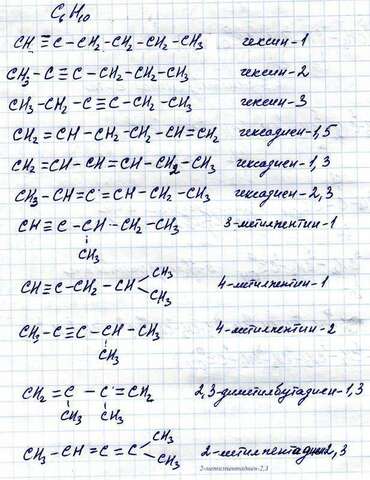 C₆H₁₀
CH≡C–CH₂–CH₂–CH₂–CH₃ гексин-1
CH₃–C≡C–CH₂–CH₂–CH₃ гексин-2
CH₃–CH₂–C≡C–CH₂–CH₃ гексин-3
CH₂=CH–CH₂–CH₂–CH=CH₂ гексадиен-1,5
CH₂=CH–CH=CH–CH₂–CH₃ гексадиен-1,3
CH₃–CH=C=CH–CH₂–CH₃ гексадиен-2,3
CH≡C–CH–CH₂–CH₃ 3-метилпентин-1
CH₃
CH₃
CH≡C–CH₂–CH 4-метилпентин-1
CH₃
CH₃–C≡C–CH–CH₃ 4-метилпентин-2
CH₃
CH₂=C–C=CH₂ 2,3-диметилбутадиен-1,3
CH₃ CH₃
CH₃
CH₃–CH=C=C 2-метилпентадиен-2,3
CH₃
2-метилпентадиен-2,3